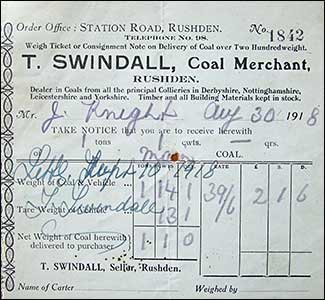 Order Office : STATION ROAD, RUSHDEN. No. 1842
TELEPHONE No. 98.
Weigh Ticket or Consignment Note on Delivery of Coal over Two Hundredweight.
T. SWINDALL, Coal Merchant,
RUSHDEN.
Dealer in Coals from all the principal Collieries in Derbyshire, Nottinghamshire,
Leicestershire and Yorkshire. Timber and all Building Materials kept in stock.
Mr. J. Knight Aug 30 1918
TAKE NOTICE that you are to receive herewith
1 tons 1 cwts. qrs.
COAL.
£. S. D.
1918
Weight of Coal & Vehicle 1 14 1 39/6 2 1 6
T. Swindall
Tare Weight of Vehicle 13 1
Net Weight of Coal herewith
delivered to purchaser 1 1 0
T. SWINDALL, Seller, Rushden.
Name of Carter Weighed by